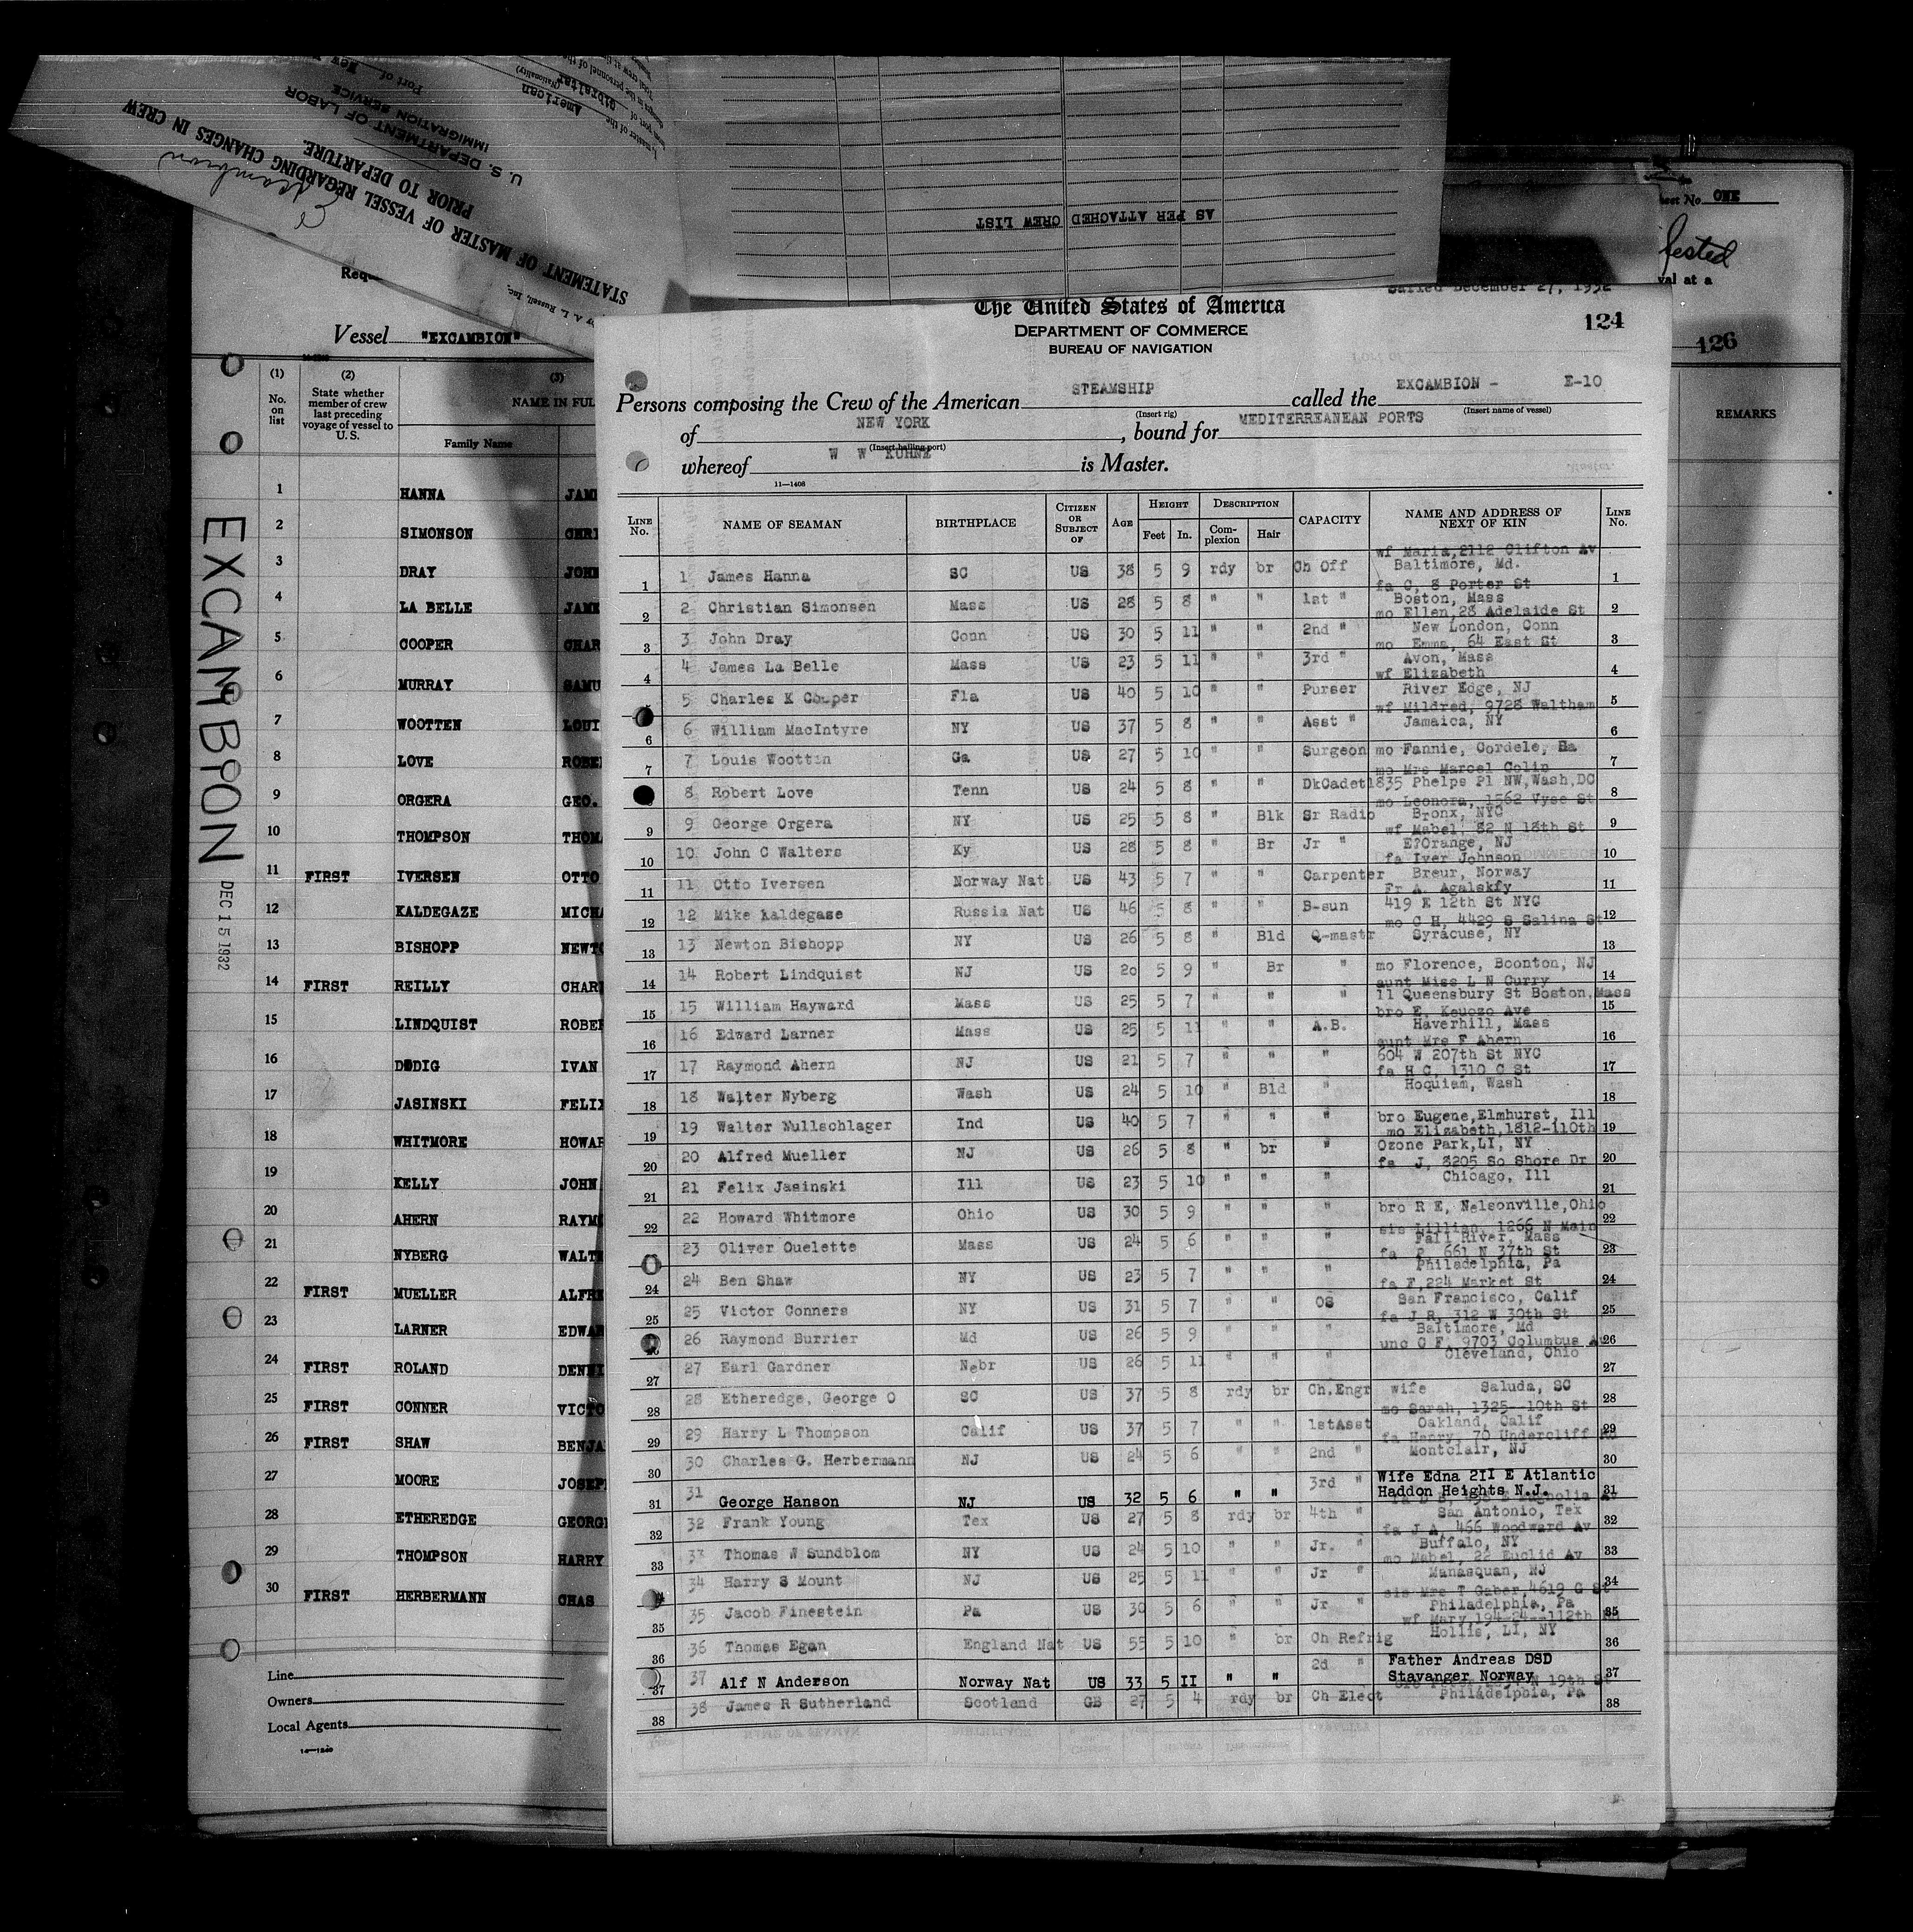 STATEMENT OF MASTER OF VESSEL REGARDING CHANGES IN CREW
PRIOR TO DEPARTURE.
U. S. DEPARTMENT OF LABOR
IMMIGRATION SERVICE
Port of New
American
(Nationality)
Gibraltar
AS PER ATTACHED CREW LIST
Sheet No. ONE
val at a
126
REMARKS
Vessel "EXCAMBION"
(1) (2) (3)
No. on list
State whether member of crew last preceding voyage of vessel to U. S.
NAME IN FUL
Family Name
1 HANNA JAM
2 SIMONSON CHRI
3 DRAY JOHN
4 LA BELLE JAME
5 COOPER CHAR
6 MURRAY SAMU
7 WOOTTEN LOUI
8 LOVE ROBE
9 ORGERA GEO.
10 THOMPSON THOM
11 FIRST IVERSEN OTTO
12 KALDEGAZE MICH
13 BISHOPP NEWT
14 FIRST REILLY CHAR
15 LINDQUIST ROBE
16 DODIG IVAN
17 JASINSKI FELIX
18 WHITMORE HOWAR
19 KELLY JOHN
20 AHERN RAYM
21 NYBERG WALT
22 FIRST MUELLER ALFR
23 LARNER EDWA
24 FIRST ROLAND DENN
25 FIRST CONNER VICTO
26 FIRST SHAW BENJA
27 MOORE JOSEP
28 ETHEREDGE GEORG
29 THOMPSON HARRY
30 FIRST HERBERMANN CHAS
Line
Owners
Local Agents
14—1240
EXCAMBION
DEC 15 1932
Sailed December 27, 1932
The United States of America
DEPARTMENT OF COMMERCE
BUREAU OF NAVIGATION
124
Persons composing the Crew of the American STEAMSHIP called the EXCAMBION - E-10
(Insert rig) (Insert name of vessel)
of NEW YORK, bound for MEDITERREANEAN PORTS
(Insert hailing port)
whereof W W KUHNE is Master.
11—1408
LINE No. NAME OF SEAMAN BIRTHPLACE CITIZEN OR SUBJECT OF AGE HEIGHT Feet In. DESCRIPTION Complexion Hair CAPACITY NAME AND ADDRESS OF NEXT OF KIN LINE No.
wf Maria,2112 Clifton Av
1 1 James Hanna SC US 38 5 9 rdy br Ch Off Baltimore, Md. 1
fa C, 8 Porter St
2 2 Christian Simonsen Mass US 28 5 8 " " 1st " Boston, Mass 2
mo Ellen,28 Adelaide St
3 3 John Dray Conn US 30 5 11 " " 2nd " New London, Conn 3
mo Emma, 64 East St
4 4 James La Belle Mass US 23 5 11 " " 3rd " Avon, Mass 4
wf Elizabeth
5 Charles K Cooper Fla US 40 5 10 " " Purser River Edge, NJ 5
wf Mildred, 9728 Waltham
6 6 William MacIntyre NY US 37 5 8 " " Asst " Jamaica, NY 6
7 7 Louis Woottin Ga US 27 5 10 " " Surgeon mo Fannie, Cordele, Ha 7
mo Mrs Marcel Colin
8 Robert Love Tenn US 24 5 8 " " DkCadet 1835 Phelps Pl NW,Wash,DC 8
mo Leonora, 1562 Vyse St
9 9 George Orgera NY US 25 5 8 " Blk Sr Radio Bronx, NYC 9
wf Mabel, 82 N 18th St
10 10 John C Walters Ky US 28 5 8 " Br Jr " E?Orange, NJ 10
fa Iver Johnson
11 11 Otto Iversen Norway Nat US 43 5 7 " " Carpenter Breur, Norway 11
Fr A. Agalskfy
12 12 Mike Kaldegase Russia Nat US 46 5 8 " " B-sun 419 E 12th St NYC 12
mo C H, 4429 S Salina St
13 13 Newton Bishopp NY US 26 5 8 " Bld Q-mastr Syracuse, NY 13
14 14 Robert Lindquist NJ US 20 5 9 " Br " mo Florence, Boonton, NJ 14
aunt Miss L N Curry
15 15 William Hayward Mass US 25 5 7 " " " 11 Queensbury St Boston,Mass 15
bro E. Keuozo Ave
16 16 Edward Larner Mass US 25 5 11 " " A.B. Haverhill, Mass 16
aunt Mrs F Ahern
17 17 Raymond Ahern NJ US 21 5 7 " " " 604 W 207th St NYC 17
fa H C, 1310 C St
18 18 Walter Nyberg Wash US 24 5 10 " Bld " Hoquiam, Wash 18
19 19 Walter Nullschlager Ind US 40 5 7 " " " bro Eugene,Elmhurst, Ill 19
mo Elizabeth,1812-110th
20 20 Alfred Mueller NJ US 26 5 8 " br " Ozone Park,LI, NY 20
fa J, 8205 So Shore Dr
21 21 Felix Jasinski Ill US 23 5 10 " " " Chicago, Ill 21
22 22 Howard Whitmore Ohio US 30 5 9 " " " bro R E, Nelsonville,Ohio 22
sis Lillian, 1266 N Main
23 Oliver Ouelette Mass US 24 5 6 " " " Fall River, Mass 23
fa P, 661 N 37th St
24 24 Ben Shaw NY US 23 5 7 " " " Philadelphia, Pa 24
fa F,224 Market St
25 25 Victor Conners NY US 31 5 7 " " OS San Francisco, Calif 25
fa J R, 312 W 30th St
26 26 Raymond Burrier Md US 26 5 9 " " " Baltimore, Md 26
unc C F, 9703 Columbus Av
27 27 Earl Gardner Nebr US 26 5 11 " " " Cleveland, Ohio 27
28 28 Etheredge, George O SC US 37 5 8 rdy br Ch.Engr wife Saluda, SC 28
mo Sarah, 1325--10th St
29 29 Harry L Thompson Calif US 37 5 7 " " 1stAsst Oakland, Calif 29
fa Henry, 70 Undercliff Rd
30 30 Charles G. Herbermann NJ US 24 5 6 " " 2nd " Montclair, NJ 30
Wife Edna 2II E Atlantic
31 31 George Hanson NJ US 32 5 6 " " 3rd " Haddon Heights N.J. 31
32 32 Frank Young Tex US 27 5 8 rdy br 4th " San Antonio, Tex 32
fa J A, 466 Woodward Av
33 33 Thomas W Sundblom NY US 24 5 10 " " Jr. " Buffalo, NY 33
mo Mabel, 22 Euclid Av
34 Harry S Mount NJ US 25 5 11 " " Jr " Manasquan, NJ 34
sis Mrs T Gaber,4619 G St
35 35 Jacob Finestein Pa US 30 5 6 " " Jr " Philadelphia, Pa 35
wf Mary,194-24--112th Rd
36 36 Thomas Egan England Nat US 55 5 10 " br Ch Refrig Hollis, LI, NY 36
Father Andreas DSD
37 37 Alf N Anderson Norway Nat US 33 5 II " " 2d " Stavanger Norway 37
38 38 James R Sutherland Scotland GB 27 5 4 rdy br Ch Elect Philadelphia, Pa 38